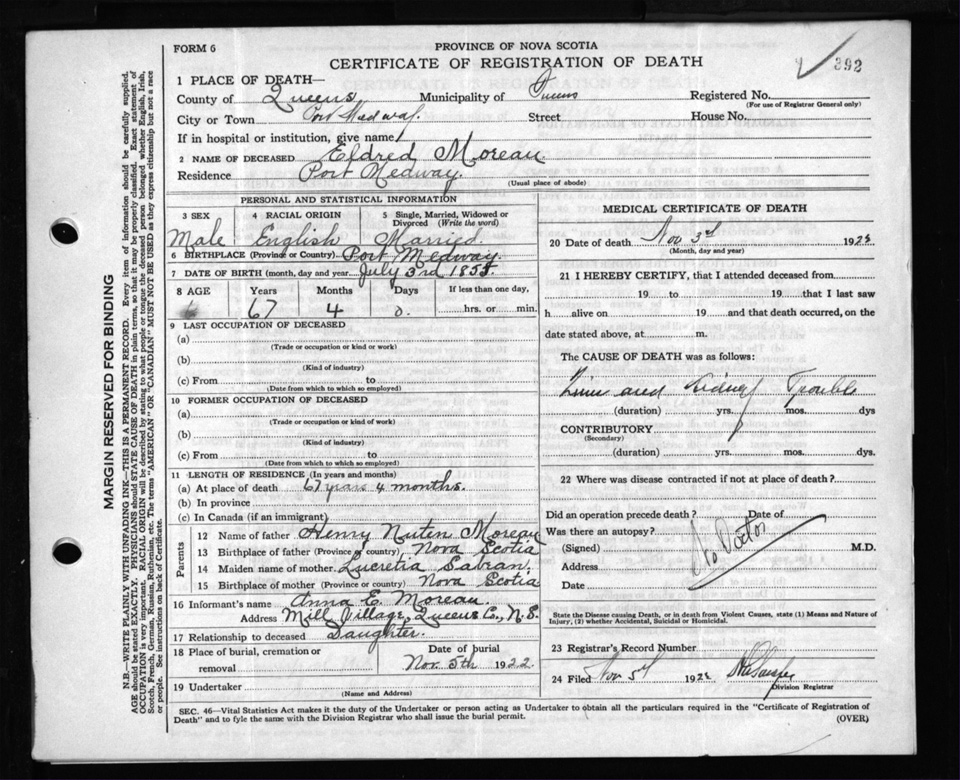 FORM 6
PROVINCE OF NOVA SCOTIA
CERTIFICATE OF REGISTRATION OF DEATH
392
1 PLACE OF DEATH—
County of Queens Municipality of Queens Registered No.
(For use of Registrar General only)
City or Town Port Medway. Street House No.
If in hospital or institution, give name
2 NAME OF DECEASED Eldred Moreau
Residence Port Medway.
(Usual place of abode)
PERSONAL AND STATISTICAL INFORMATION
3 SEX 4 RACIAL ORIGIN 5 Single, Married, Widowed or Divorced (Write the word)
Male English Married.
6 BIRTHPLACE (Province or Country) Port Medway.
7 DATE OF BIRTH (month, day and year July 3rd 1855.
8 AGE Years Months Days If less than one day,
67 4 0. hrs. or min.
9 LAST OCCUPATION OF DECEASED
(a)
(Trade or occupation or kind or work)
(b)
(Kind of industry)
(c) From to
(Date from which to which so employed)
10 FORMER OCCUPATION OF DECEASED
(a)
(Trade or occupation or kind of work)
(b)
(Kind of industry)
(c) From to
(Date from which to which so employed)
11 LENGTH OF RESIDENCE (In years and months)
(a) At place of death 67 years 4 months.
(b) In province
(c) In Canada (if an immigrant)
Parents
12 Name of father Henry Moreau
13 Birthplace of father (Province or country) Nova Scotia
14 Maiden name of mother Lucretia
15 Birthplace of mother (Province or country) Nova Scotia
16 Informant's name Anna E. Moreau.
Address Mill Village, Queens Co., N.S.
17 Relationship to deceased Daughter.
18 Place of burial, cremation or removal Date of burial
Nov. 5th 1922.
19 Undertaker
(Name and Address)
MEDICAL CERTIFICATE OF DEATH
20 Date of death Nov 3rd 1922
(Month, day and year)
21 I HEREBY CERTIFY, that I attended deceased from
19 to 19 that I last saw
h alive on 19 and that death occurred, on the
date stated above, at m.
The CAUSE OF DEATH was as follows:
and Kidney Trouble
(duration) yrs. mos. dys
CONTRIBUTORY
(Secondary)
(duration) yrs. mos. dys.
22 Where was disease contracted if not at place of death?
Did an operation precede death? Date of
Was there an autopsy?
(Signed) No Doctor M.D.
Address
Date
State the Disease causing Death, or in death from Violent Causes, state (1) Means and Nature of
Injury, (2) whether Accidental, Suicidal or Homicidal.
23 Registrar's Record Number
24 Filed Nov 1922
Division Registrar
SEC. 46—Vital Statistics Act makes it the duty of the Undertaker or person acting as Undertaker to obtain all the particulars required in the "Certificate of Registration of
Death" and to fyle the same with the Division Registrar who shall issue the burial permit.
(OVER)
MARGIN RESERVED FOR BINDING
N.B.—WRITE PLAINLY WITH UNFADING INK—THIS IS A PERMANENT RECORD. Every item of information should be carefully supplied.
AGE should be stated EXACTLY. PHYSICIANS should STATE CAUSE OF DEATH in plain terms, so that it may be properly classified. Exact statement of
OCCUPATION is very important. RACIAL ORIGIN will be described by stating to what people or tongue the deceased person belonged whether English, Irish,
Scotch, French, German, Russian, Ruthenian, etc. The terms "AMERICAN" OR "CANADIAN" MUST NOT BE USED as they express citizenship but not a race
or people. See instructions on back of Certificate.